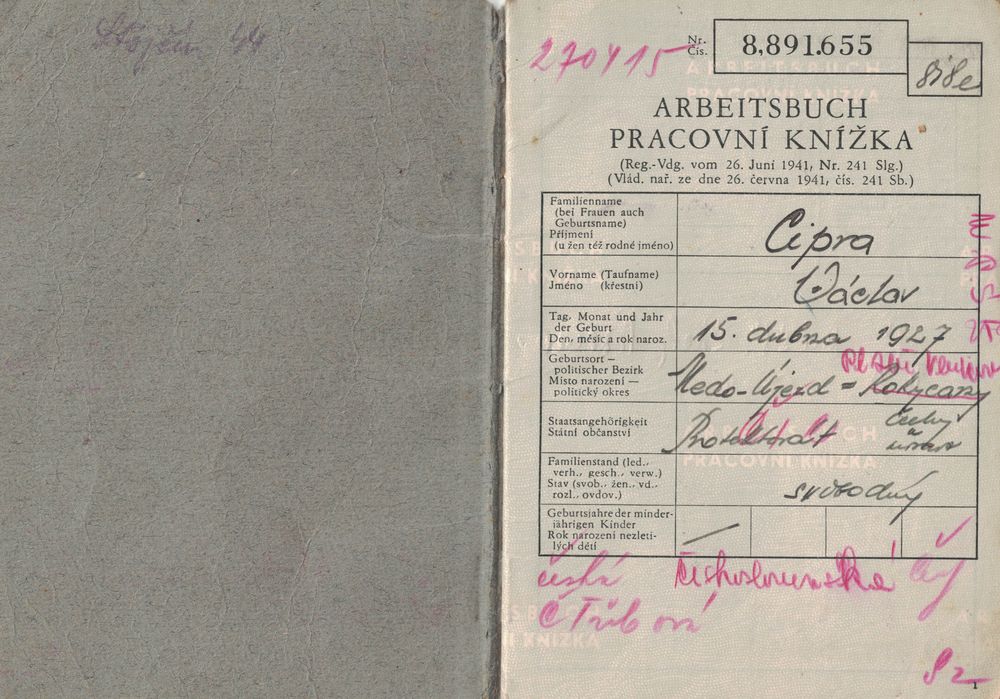 270415
Nr.
Čís.
8,891.655
ARBEITSBUCH
PRACOVNÍ KNÍŽKA
(Reg.-Vdg. vom 26. Juni 1941, Nr. 241 Slg.)
(Vlád. nař. ze dne 26. června 1941, čís. 241 Sb.)
Familienname
(bei Frauen auch
Geburtsname)
Příjmení
(u žen též rodné jméno)
Cipra
Vorname (Taufname)
Jméno (křestní)
Václav
Tag, Monat und Jahr
der Geburt
Den, měsíc a rok naroz.
15. dubna 1927
Geburtsort —
politischer Bezirk
Místo narození —
politický okres
Medo-Újezd = Rokycany
Staatsangehörigkeit
Státní občanství
Protektorát Čechy
a
Familienstand (led.,
verh., gesch., verw.)
Stav (svob., žen., vd.,
rozl., ovdov.)
svobodný
Geburtsjahre der minder-
jährigen Kinder
Rok narození nezleti-
lých dětí
—
česká Československá
1